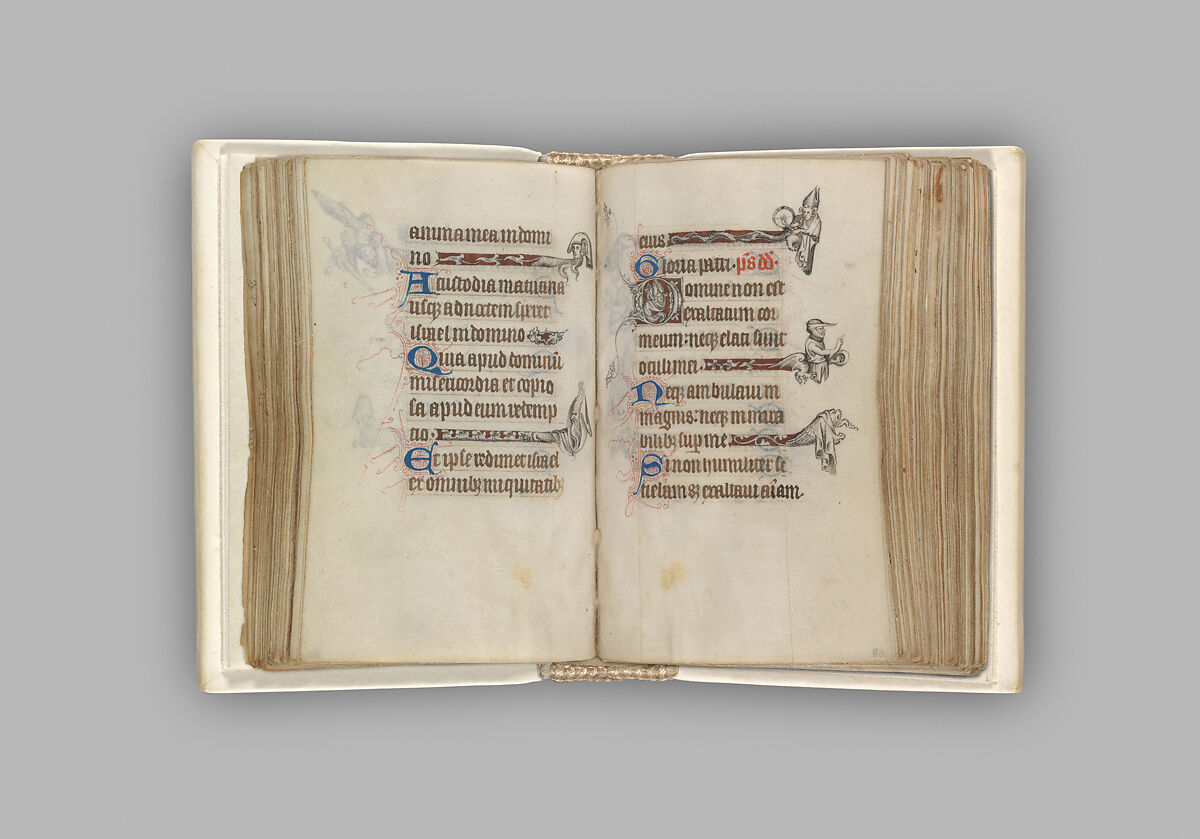 anima mea in domi
no
A custodia matutina
usq; ad noctem speret
israel in domino
Quia apud dominū
misericordia et copio
sa apud eum redemp
tio.
Et ipse redimet israel
ex omnib; iniquitatib;
eius
Gloria patri. p̄s dd̄.
Domine non est
exaltatum cor
meum: neq; elati sunt
oculi mei.
Neq; ambulaui in
magnis: neq; in mira
bilib; sup me.
Si non humiliter se
tiebam s; exaltaui aīam.